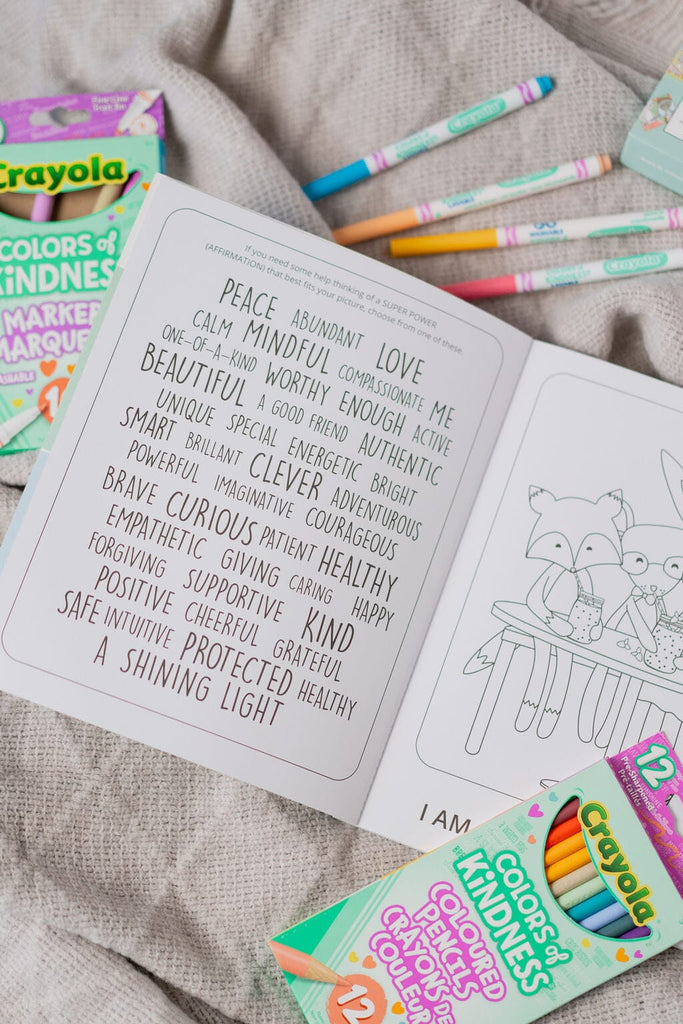 If you need some help thinking of a SUPER POWER
(AFFIRMATION) that best fits your picture, choose from one of these.
PEACE ABUNDANT LOVE
CALM MINDFUL COMPASSIONATE ME
ONE-OF-A-KIND WORTHY ENOUGH ACTIVE
BEAUTIFUL A GOOD FRIEND AUTHENTIC
UNIQUE SPECIAL ENERGETIC BRIGHT
SMART BRILLANT CLEVER ADVENTUROUS
POWERFUL IMAGINATIVE COURAGEOUS
BRAVE CURIOUS PATIENT HEALTHY
EMPATHETIC GIVING CARING HAPPY
FORGIVING SUPPORTIVE KIND
POSITIVE CHEERFUL GRATEFUL
SAFE INTUITIVE PROTECTED HEALTHY
A SHINING LIGHT
I AM
Crayola
COLORS of
KINDNESS
MARKER
MARQUE
Crayola
Crayola
WASHABLE
Crayola
12
Pre-Sharpened
Pré-taillés
Crayola
COLORS of
KINDNESS
COLOURED
PENCILS
CRAYONS DE
COULEUR
12